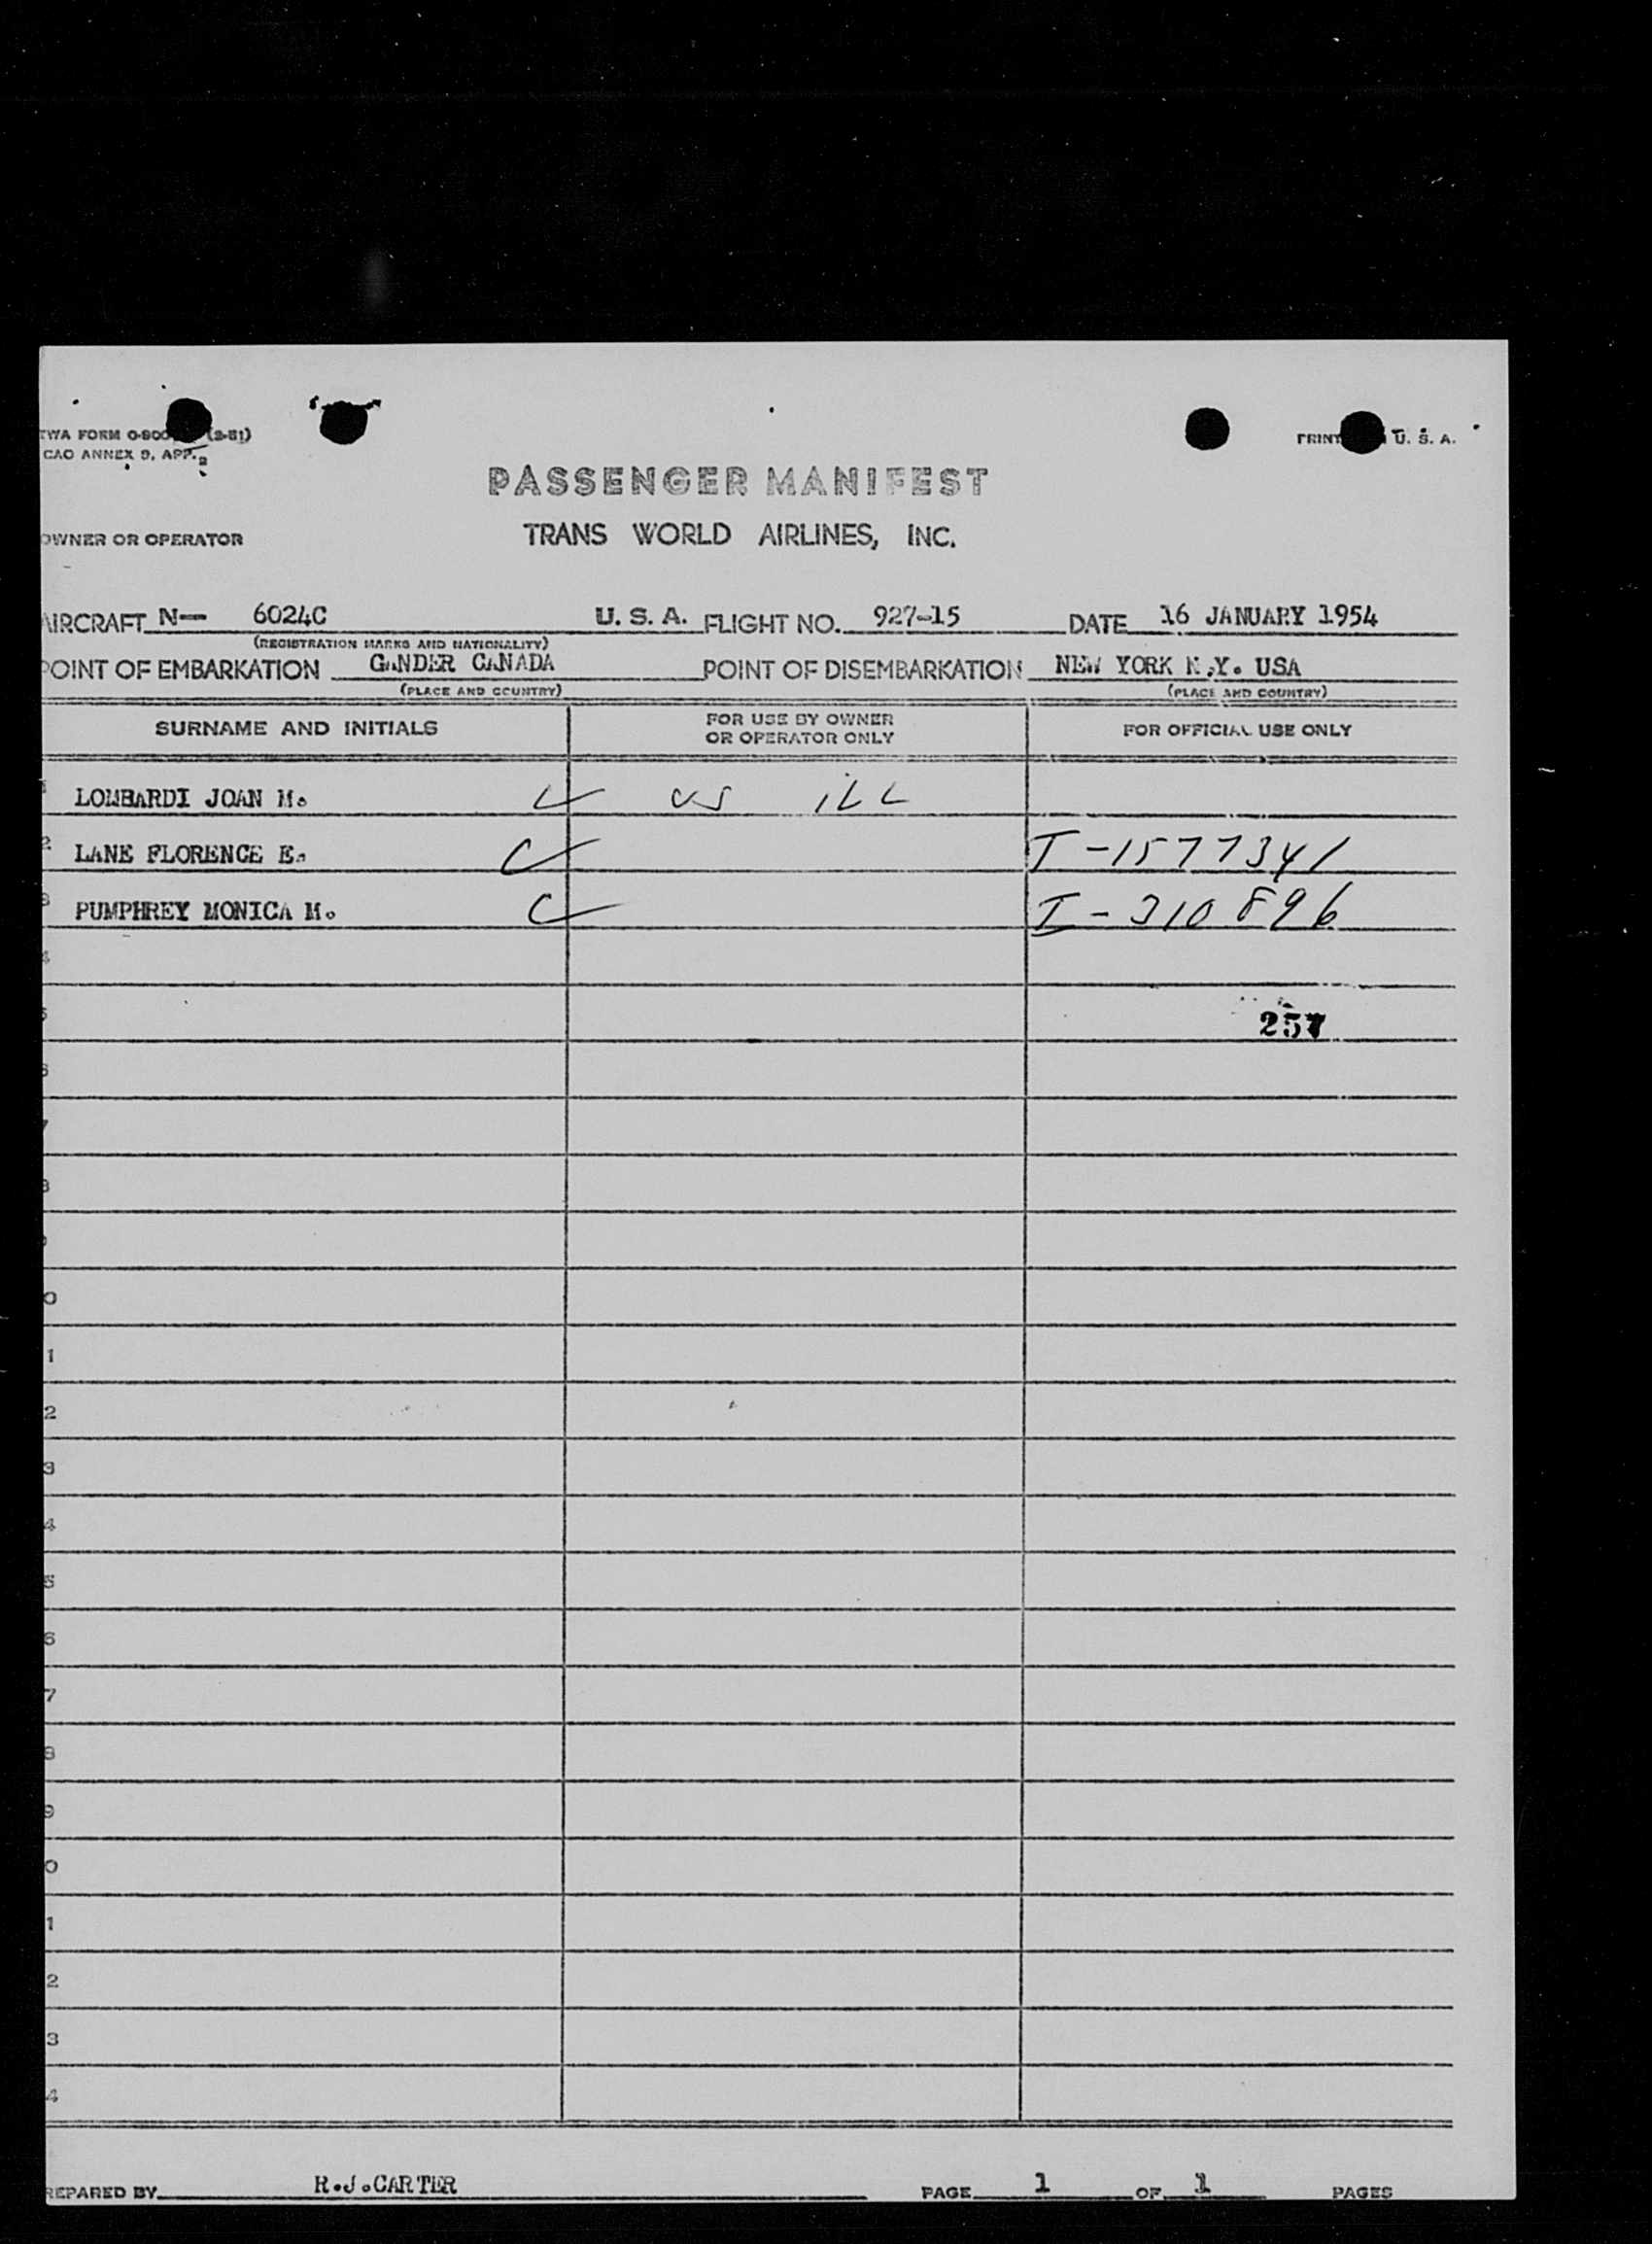 TWA FORM O-900 (2-51) PRINT U. S. A.
CAO ANNEX 9, APP. 2
PASSENGER MANIFEST
OWNER OR OPERATOR TRANS WORLD AIRLINES, INC.
AIRCRAFT N— 6024C U. S. A. FLIGHT NO. 927-15 DATE 16 JANUARY 1954
(REGISTRATION MARKS AND NATIONALITY)
POINT OF EMBARKATION GANDER CANADA POINT OF DISEMBARKATION NEW YORK N.Y. USA
(PLACE AND COUNTRY) (PLACE AND COUNTRY)
SURNAME AND INITIALS FOR USE BY OWNER OR OPERATOR ONLY FOR OFFICIAL USE ONLY
1 LOMBARDI JOAN M. US ILL
2 LANE FLORENCE E. I-1577341
3 PUMPHREY MONICA M. I-310896
4
5 257
6
7
8
0
1
2
3
4
5
6
7
8
9
0
1
2
3
4
REPARED BY R.J.CARTER PAGE 1 OF 1 PAGES